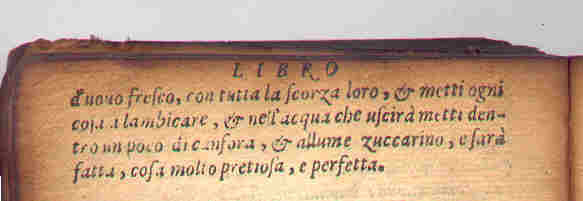 LIBRO
d'uouo fresco, con tutta la scorza loro, & metti ogni
cosa a lambicare, & nell'acqua che uscirà metti den-
tro un poco di canfora, & allume zuccarino, e sarà
fatta, cosa molto pretiosa, e perfetta.